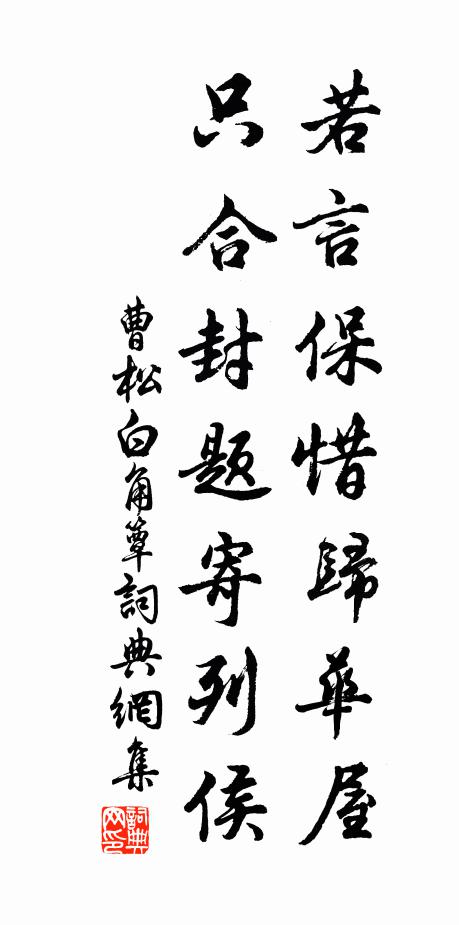 若言保惜歸華屋
只合封題寄列侯
曹松白角簟詞典網集
詞典網印